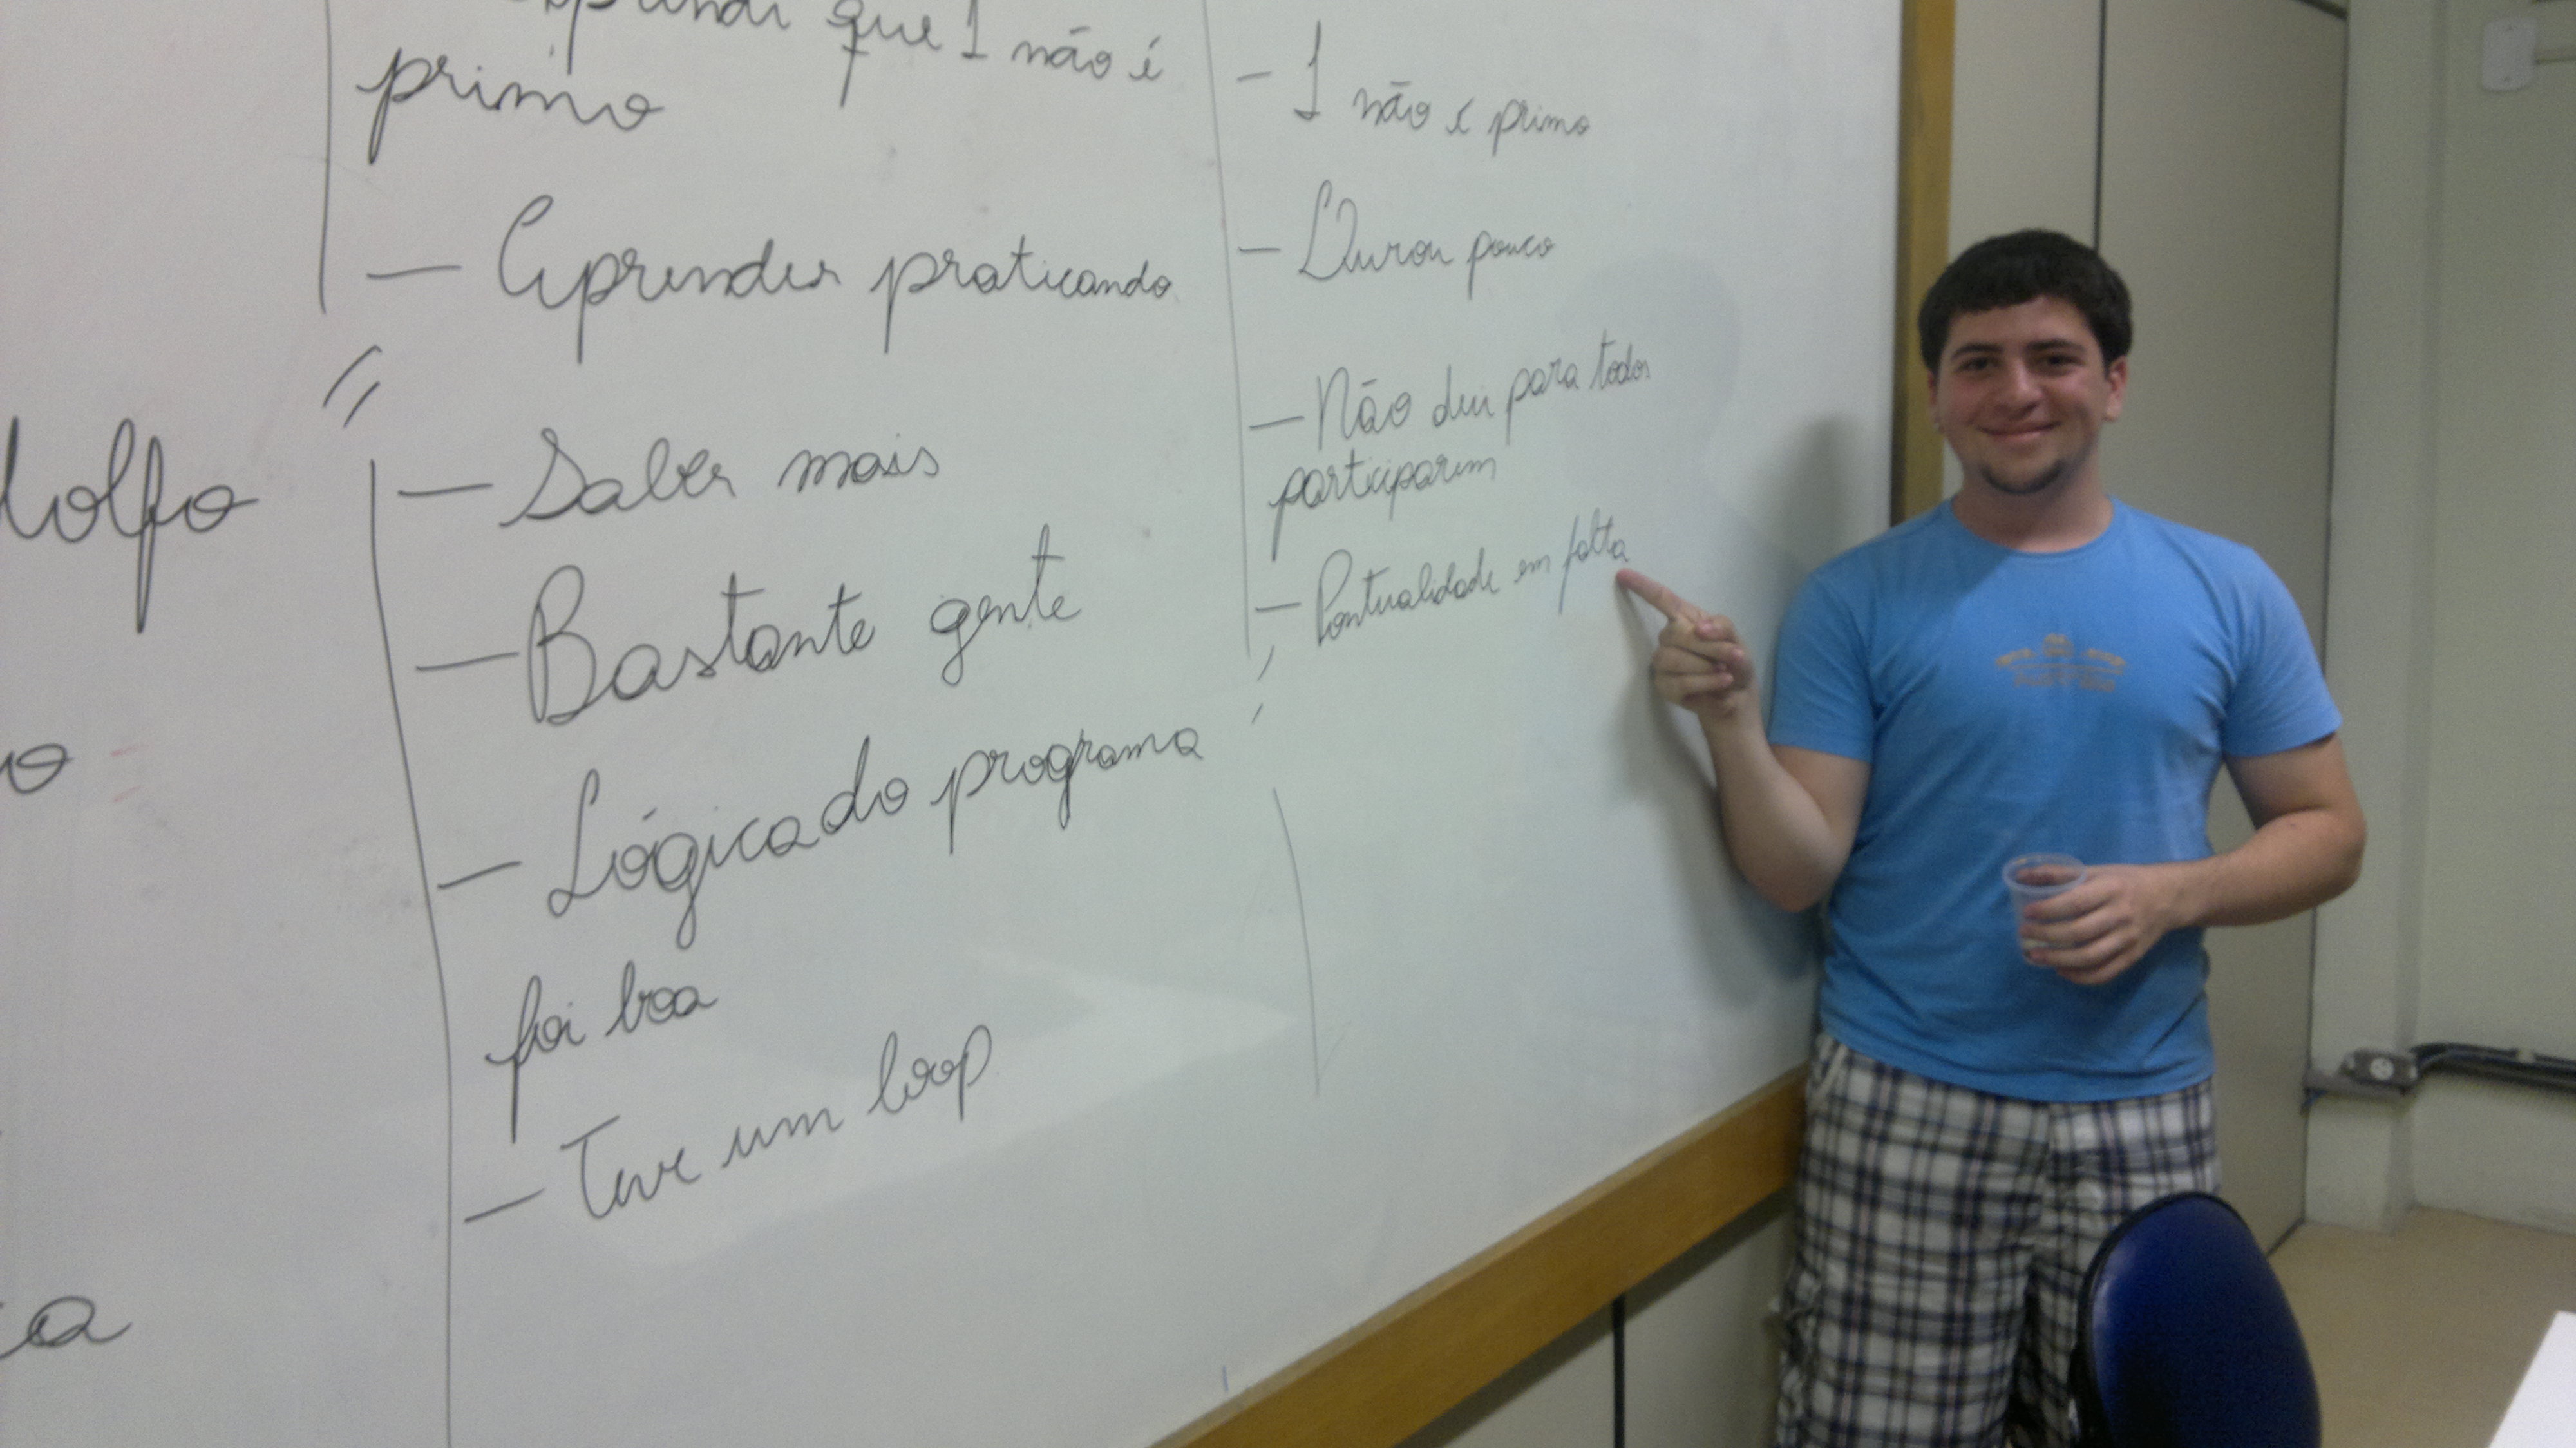 que 1 não é
primo
– Aprender praticando
– Saber mais
– Bastante gente
– Lógica do programa
foi boa
– Teve um loop
– 1 não é primo
– Durou pouco
– Não deu para todos
participarem
– Pontualidade em falta